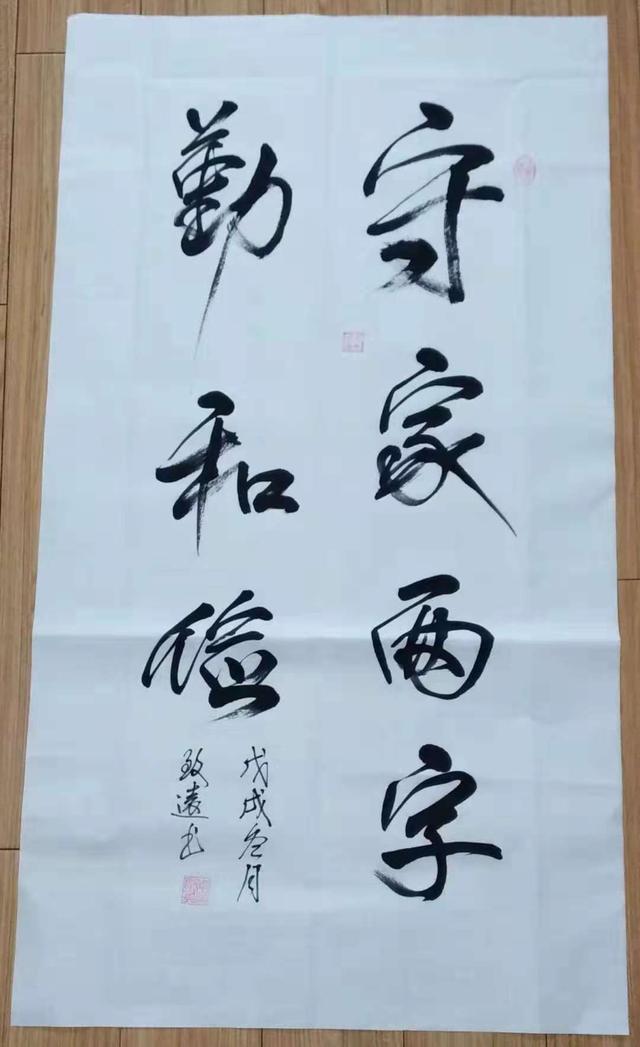 守家两字
勤和俭
戊戌冬月
致远书